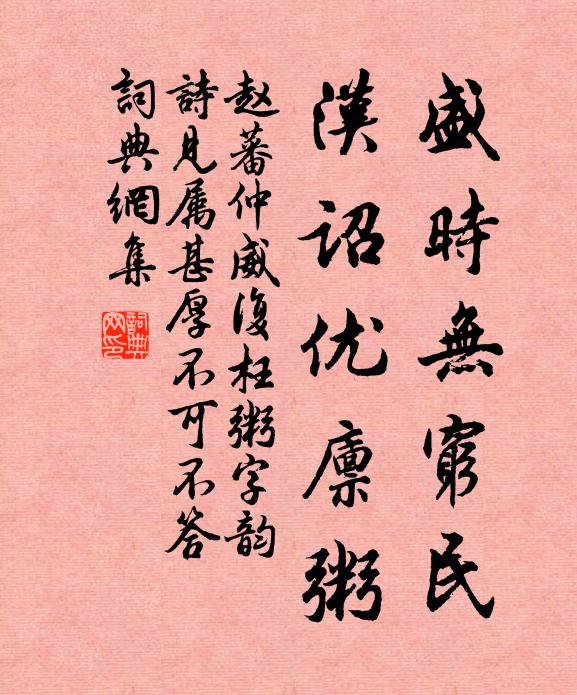 盛時無窮民
漢詔优廪粥
赵蕃仲威復枉粥字韵
詩見属甚厚不可不答
詞典網集
詞典網印